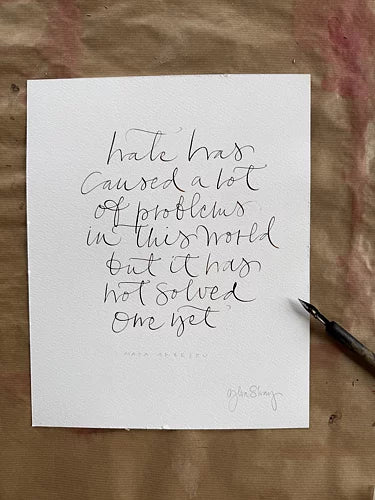 hate has
caused a lot
of problems
in this world
but it has
not solved
one yet
MAYA ANGELOU